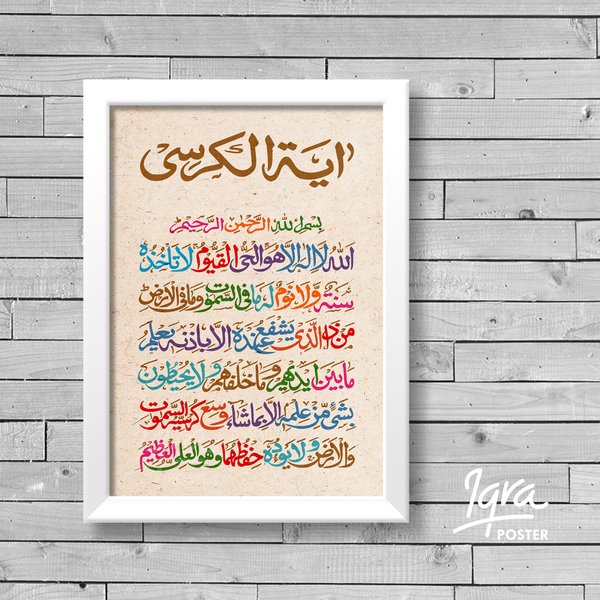 اية الكرسى
بسم الله الرحمن الرحيم
الله لا اله الا هو الحى القيوم لا تأخذه
سنة ولا نوم له ما فى السموت وما فى الارض
من ذا الذى يشفع عنده الا باذنه يعلم
ما بين ايديهم وما خلفهم ولا يحيطون
بشىء من علمه الا بما شاء وسع كرسيه السموت
والارض ولا يؤده حفظهما وهو العلى العظيم
Iqra
POSTER